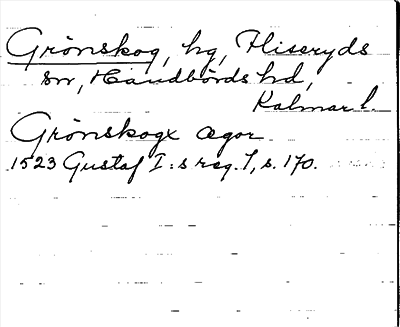 Grönskog, hg, Fliseryds
sn, Handbörds hd,
Kalmar l.
Grönskogx ægor
1523 Gustaf I:s reg. 1, s. 170.